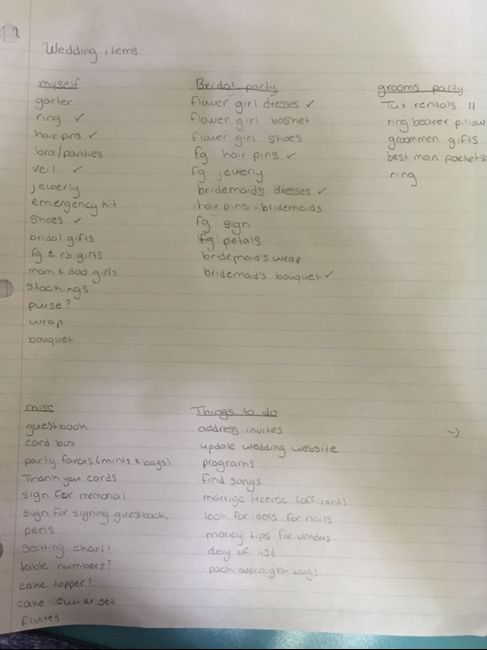 Wedding items
myself
garter
ring ✓
hair pins ✓
bra/panties
veil ✓
jewerly
emergency kit
shoes ✓
bridal gifts
fg & rb gifts
mom & dad gifts
stockings
purse?
wrap
bouquet
Bridal party
flower girl dresses ✓
flower girl basket
flower girl shoes
fg hair pins ✓
fg jewerly
bridemaid's dresses ✓
hair pins - bridemaids
fg sign
fg petals
bridemaid's wrap
bridemaid's bouquet ✓
grooms party
Tux rentals 11
ring bearer pillow
groommen gifts
best man pockets
ring
misc
guestbook
card box
party favors (mints & bags)
Thank you cards
sign for memorial
sign for signing guestbook
pens
seating chart?
table numbers?
cake topper?
cake cutter set
flutes
Things to do
address invites
update wedding website
programs
find songs
marrige license (officant)
look for ideas for nails
money tips for vendors
day of list
pack overnight bags